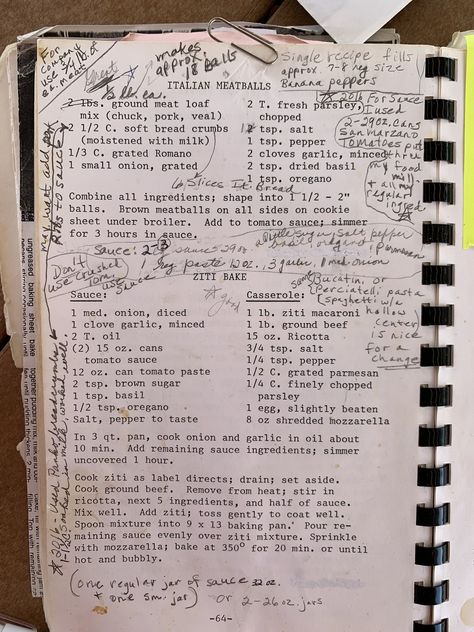 For company use 3/4 lb. of ea. meat
great
makes approx. 18 balls
Single recipe fills approx. 7-8 hey size Banana peppers
ITALIAN MEATBALLS
1 lb. ea.
2 lbs. ground meat loaf
mix (chuck, pork, veal)
2 1/2 C. soft bread crumbs
(moistened with milk)
1/3 C. grated Romano
1 small onion, grated
2 T. fresh parsley,
chopped
tsp. salt
1 tsp. pepper
2 cloves garlic, minced
2 tsp. dried basil
1 tsp. oregano
6 Slices It. Bread
2016 For Sauce
I used
2-29oz. Cans
San Marzano
Tomatoes put
thru
food
mill.
+ all my
regular
May want add pork ribs to sauce
Combine all ingredients; shape into 1 1/2 - 2"
balls. Brown meatballs on all sides on cookie
sheet under broiler. Add to tomato sauce; simmer
for 3 hours in sauce.
Sauce: 2 sauce 29oz
paste 12 oz., 3 garlic, 1 med onion
salt, pepper
basil, oregano, Parmesan
Don't use crushed tom. use sauce
ZITI BAKE
good
Bucatini, or
Perciatelli pasta
(spaghetti w/a
hallow
center)
is nice
for a
change
Sauce:
1 med. onion, diced
1 clove garlic, minced
2 T. oil
(2) 15 oz. cans
tomato sauce
12 oz. can tomato paste
2 tsp. brown sugar
1 tsp. basil
1/2 tsp. oregano
Salt, pepper to taste
Casserole:
1 lb. ziti macaroni
1 lb. ground beef
15 oz. Ricotta
3/4 tsp. salt
1/4 tsp. pepper
1/2 C. grated parmesan
1/4 C. finely chopped
parsley
1 egg, slightly beaten
8 oz shredded mozzarella
2016 - Used Panko breadcrumbs & soaked in milk, worked well.
In 3 qt. pan, cook onion and garlic in oil about
10 min. Add remaining sauce ingredients; simmer
uncovered 1 hour.
Cook ziti as label directs; drain; set aside.
Cook ground beef. Remove from heat; stir in
ricotta, next 5 ingredients, and half of sauce.
Mix well. Add ziti; toss gently to coat well.
Spoon mixture into 9 x 13 baking pan. Pour re-
maining sauce evenly over ziti mixture. Sprinkle
with mozzarella; bake at 350° for 20 min. or until
hot and bubbly.
(One regular jar of sauce 32 oz.
+ one sm. jar) or 2-26 oz. jars
-64-